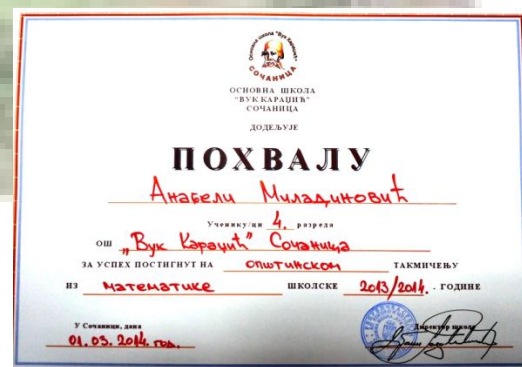 Основна школа "Вук Караџић"
СОЧАНИЦА
ОСНОВНА ШКОЛА
"ВУК КАРАЏИЋ"
СОЧАНИЦА
ДОДЕЉУЈЕ
ПОХВАЛУ
Анабели Миладиновић
Ученику/ци 4. разреда
ОШ „Вук Караџић" Сочаница
ЗА УСПЕХ ПОСТИГНУТ НА општинском ТАКМИЧЕЊУ
ИЗ математике ШКОЛСКЕ 2013/2014. . ГОДИНЕ
У Сочаници, дана
01. 03. 2014. год.
Директор школе